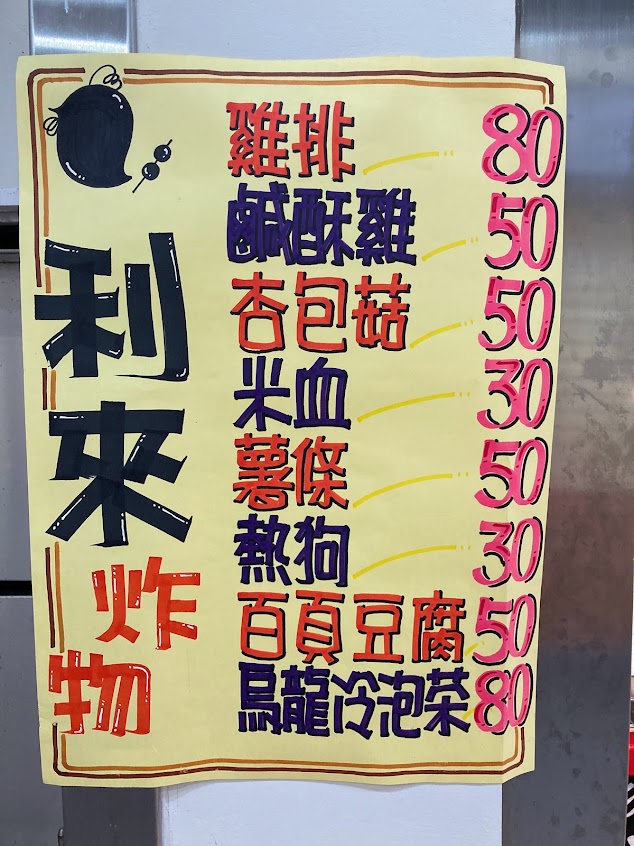 利來
炸物
雞排 80
鹹酥雞 50
杏包菇 50
米血 30
薯條 50
熱狗 30
百頁豆腐 50
烏龍冷泡茶 80